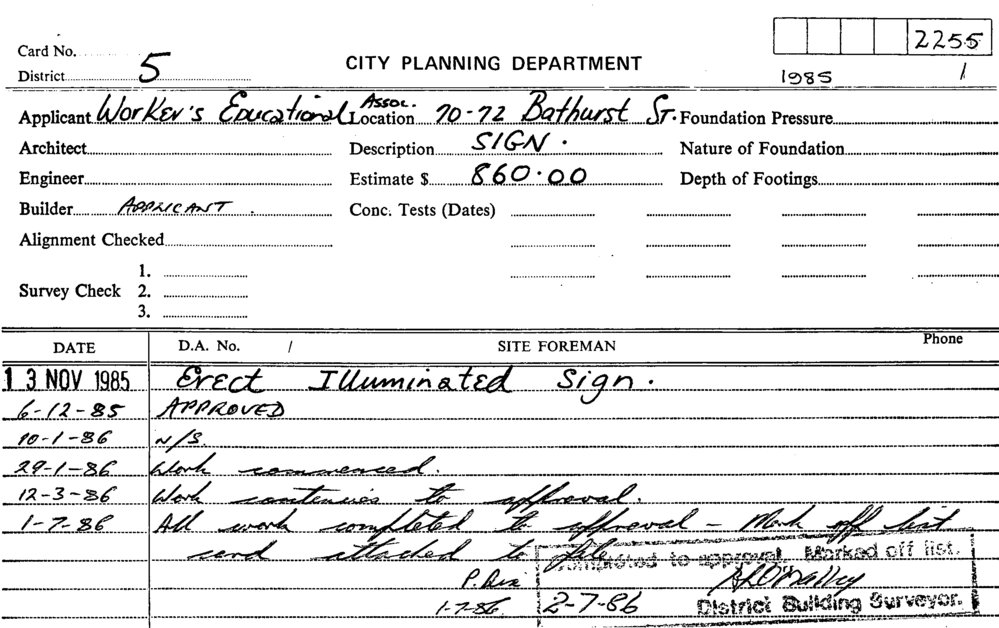 Card No.
District 5
CITY PLANNING DEPARTMENT
2255
1985 /
Applicant Worker's Educational Assoc. Location 70-72 Bathurst St. Foundation Pressure
Architect Description SIGN. Nature of Foundation
Engineer Estimate $ 860.00 Depth of Footings
Builder APPLICANT. Conc. Tests (Dates)
Alignment Checked
1.
Survey Check 2.
3.
DATE D.A. No. / SITE FOREMAN Phone
13 NOV 1985 Erect Illuminated Sign.
6-12-85 APPROVED
10-1-86 N/S.
29-1-86 Work commenced.
12-3-86 Work contenues to approval.
1-7-86 All work completed to approval - Mark off list
card attached to file
Completed to approval. Marked off list.
P.
1-7-86. 2-7-86 District Building Surveyor.